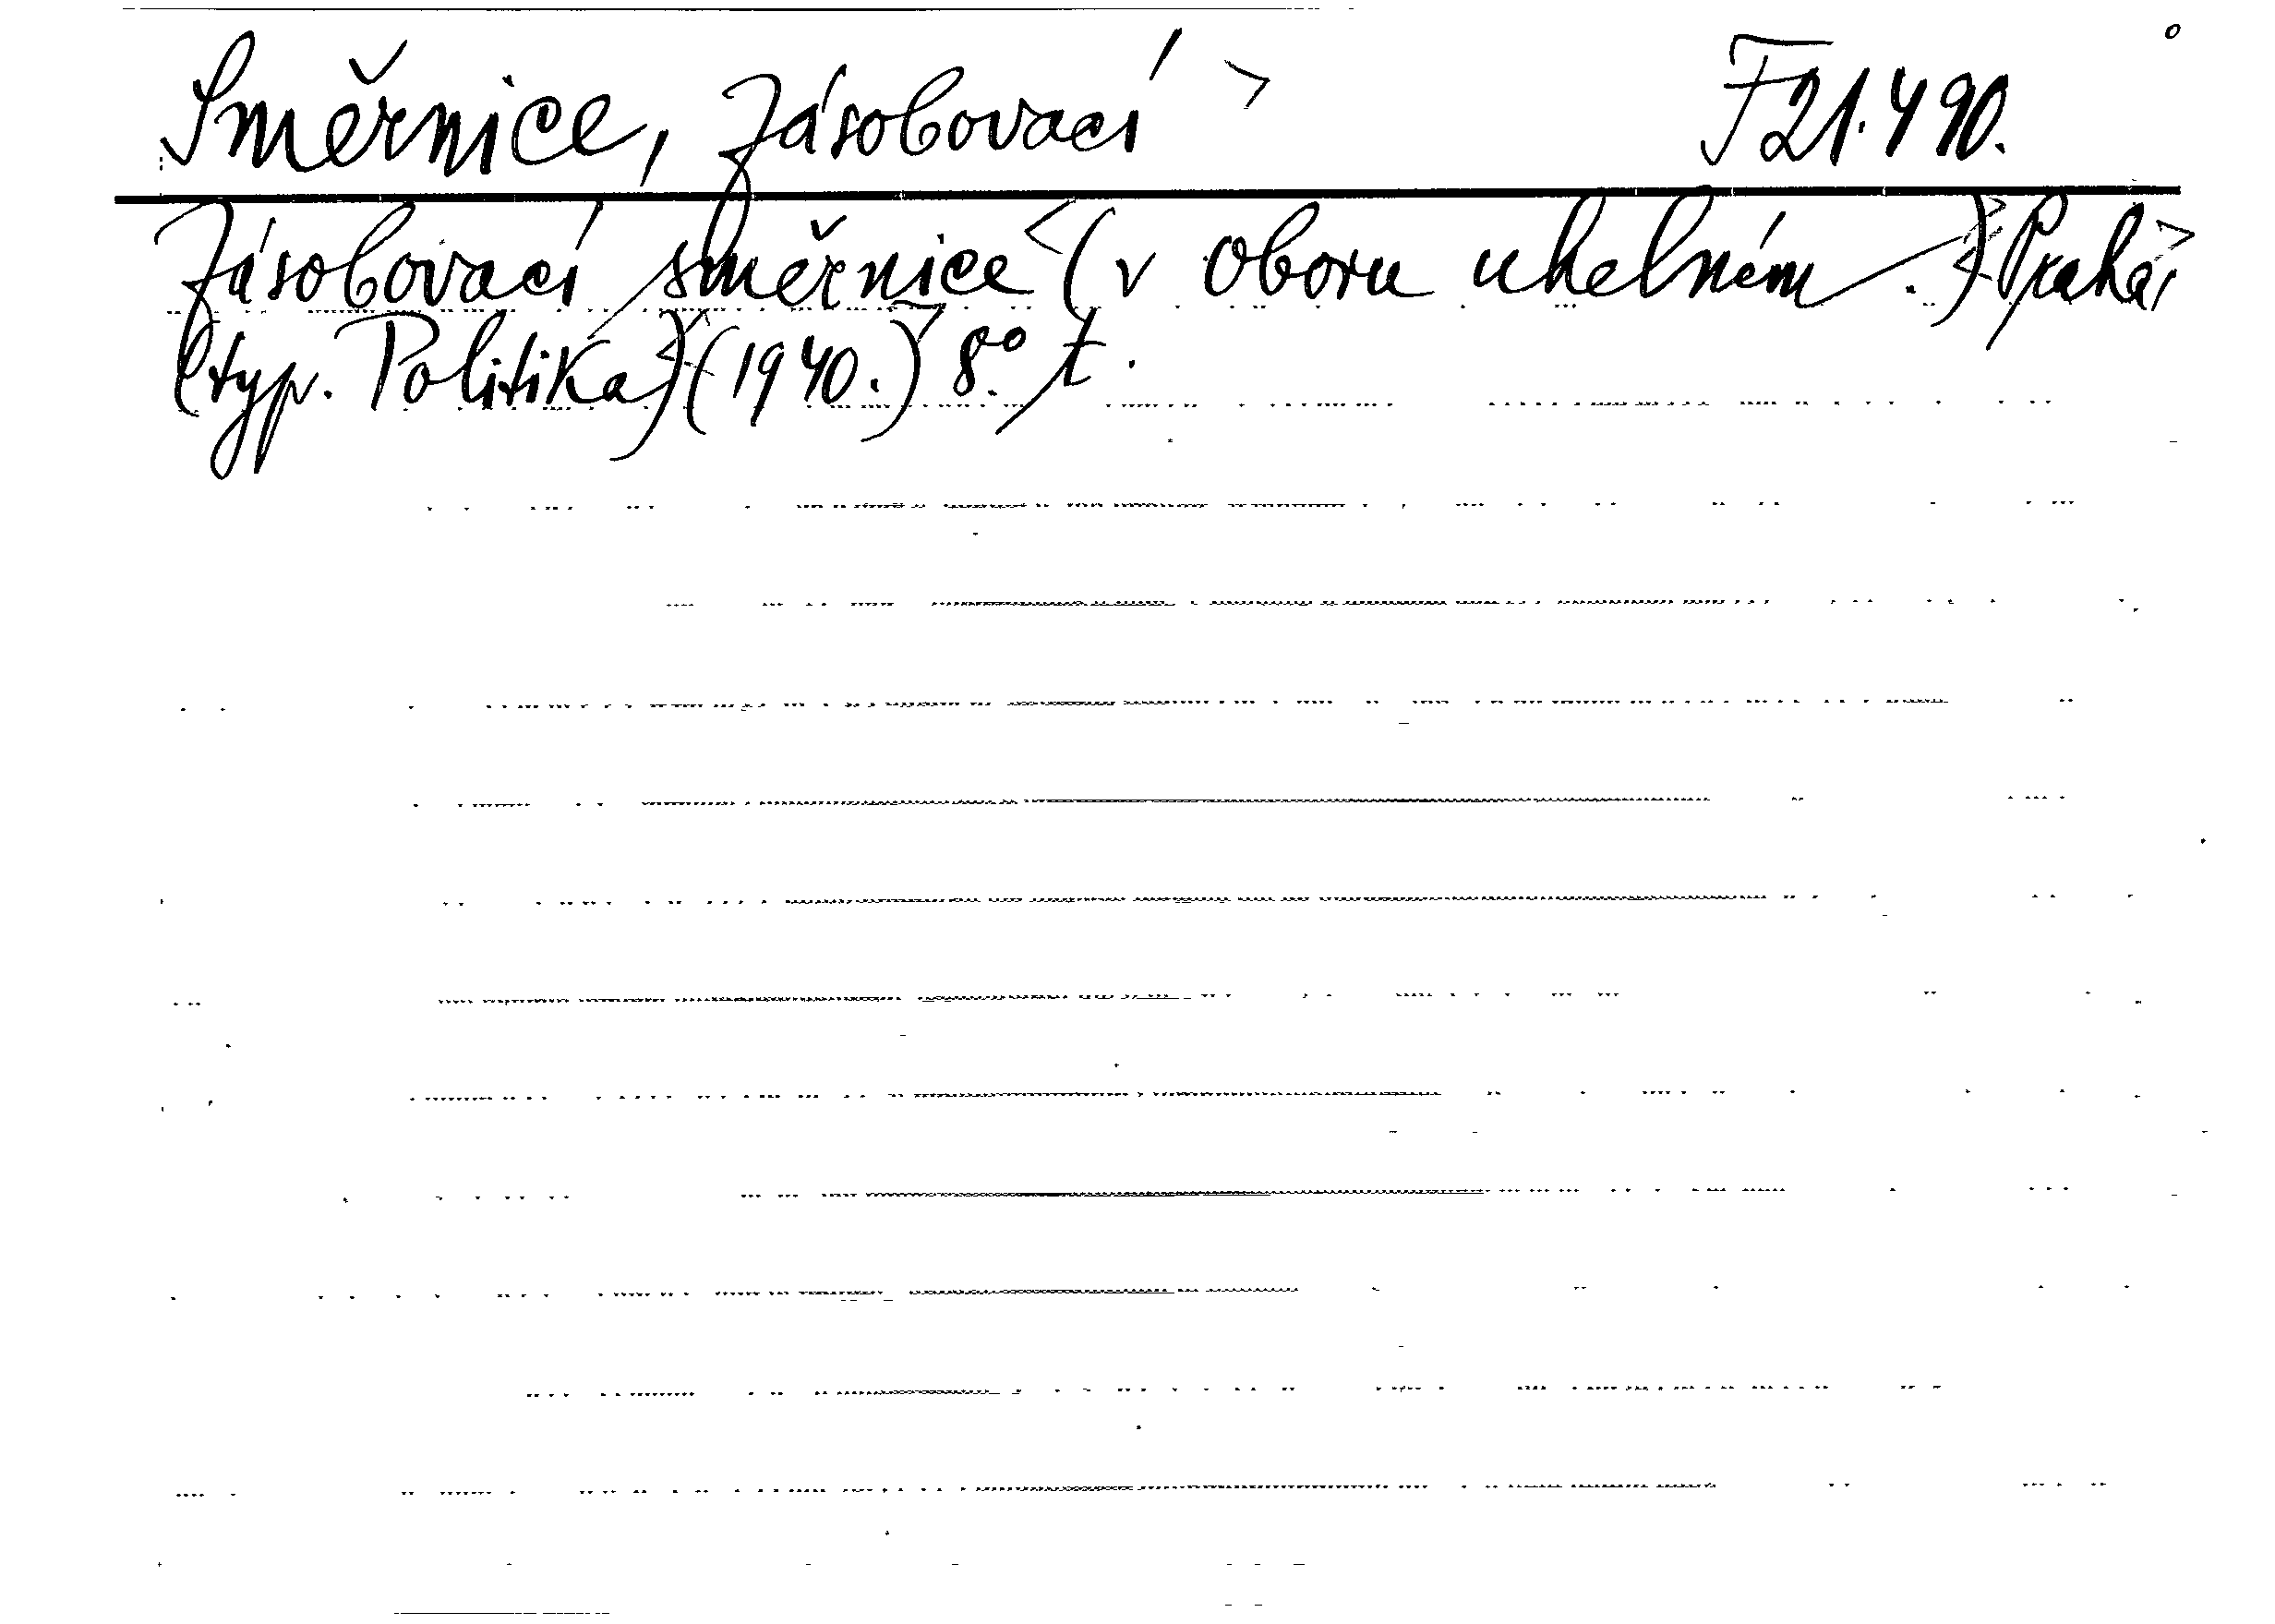 Směrnice, Zásobovací F 21.490.
Zásobovací směrnice (v oboru uhelném.) Praha,
(typ. Politika) (1940.) 8° t.